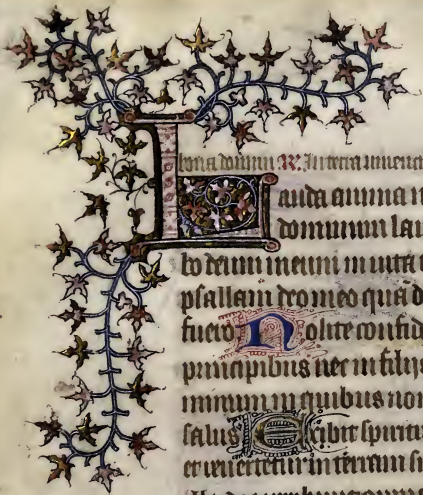 bona domini R. In terra uiuenci
Lauda anima m
dominum lau
bo deum meum in uita
psallam deo meo quā d
fuero Nolite confid
principibus nec in filijs
minum in quibus non
salus Exibit spiritu
et reuertetur in terram s